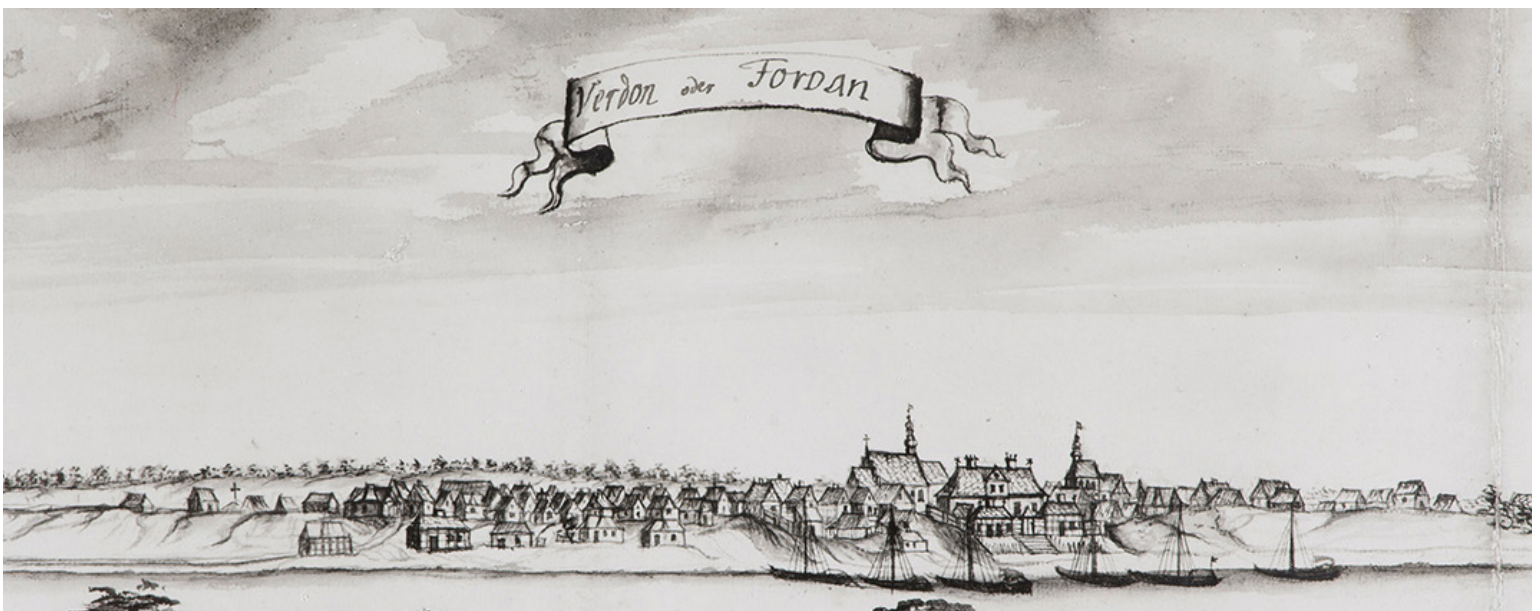 Verdon oder Fordan